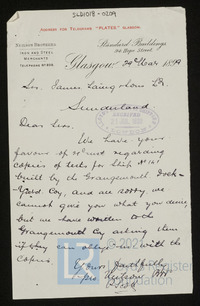 SLD1018-0209
ADDRESS FOR TELEGRAMS "PLATES" GLASGOW.
NEILSON BROTHERS
IRON AND STEEL
MERCHANTS
Standard Buildings
94 Hope Street
Glasgow, 24 Mar 1899
Sir James Laing & Sons Ld.
Sunderland
Dear Sirs,
We have your
favour of regarding
copies of tests for Ship No
built by the Grangemouth Dock-
yard Coy, and are sorry we
cannot give you what you desire,
but we have written to the
Grangemouth Coy asking them
if they can oblige you with the
copies.
Yours faithfully